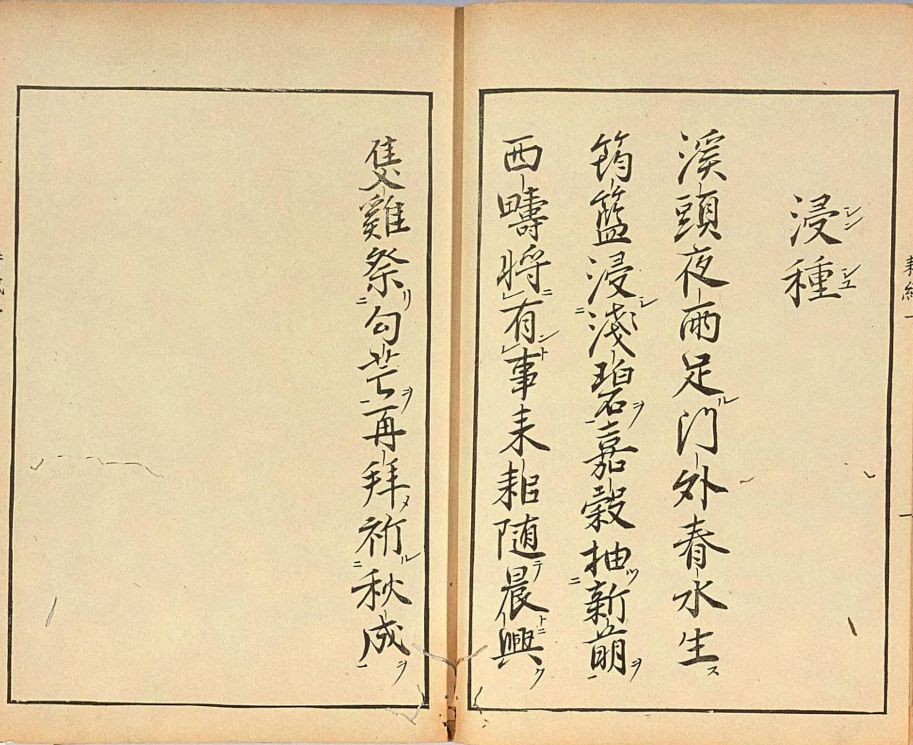 浸種
溪頭夜雨足門外春水生
筠籃浸淺碧嘉穀抽新萌
西疇将有事耒耜随晨興
隻雞祭勾芒再拜祈秋成